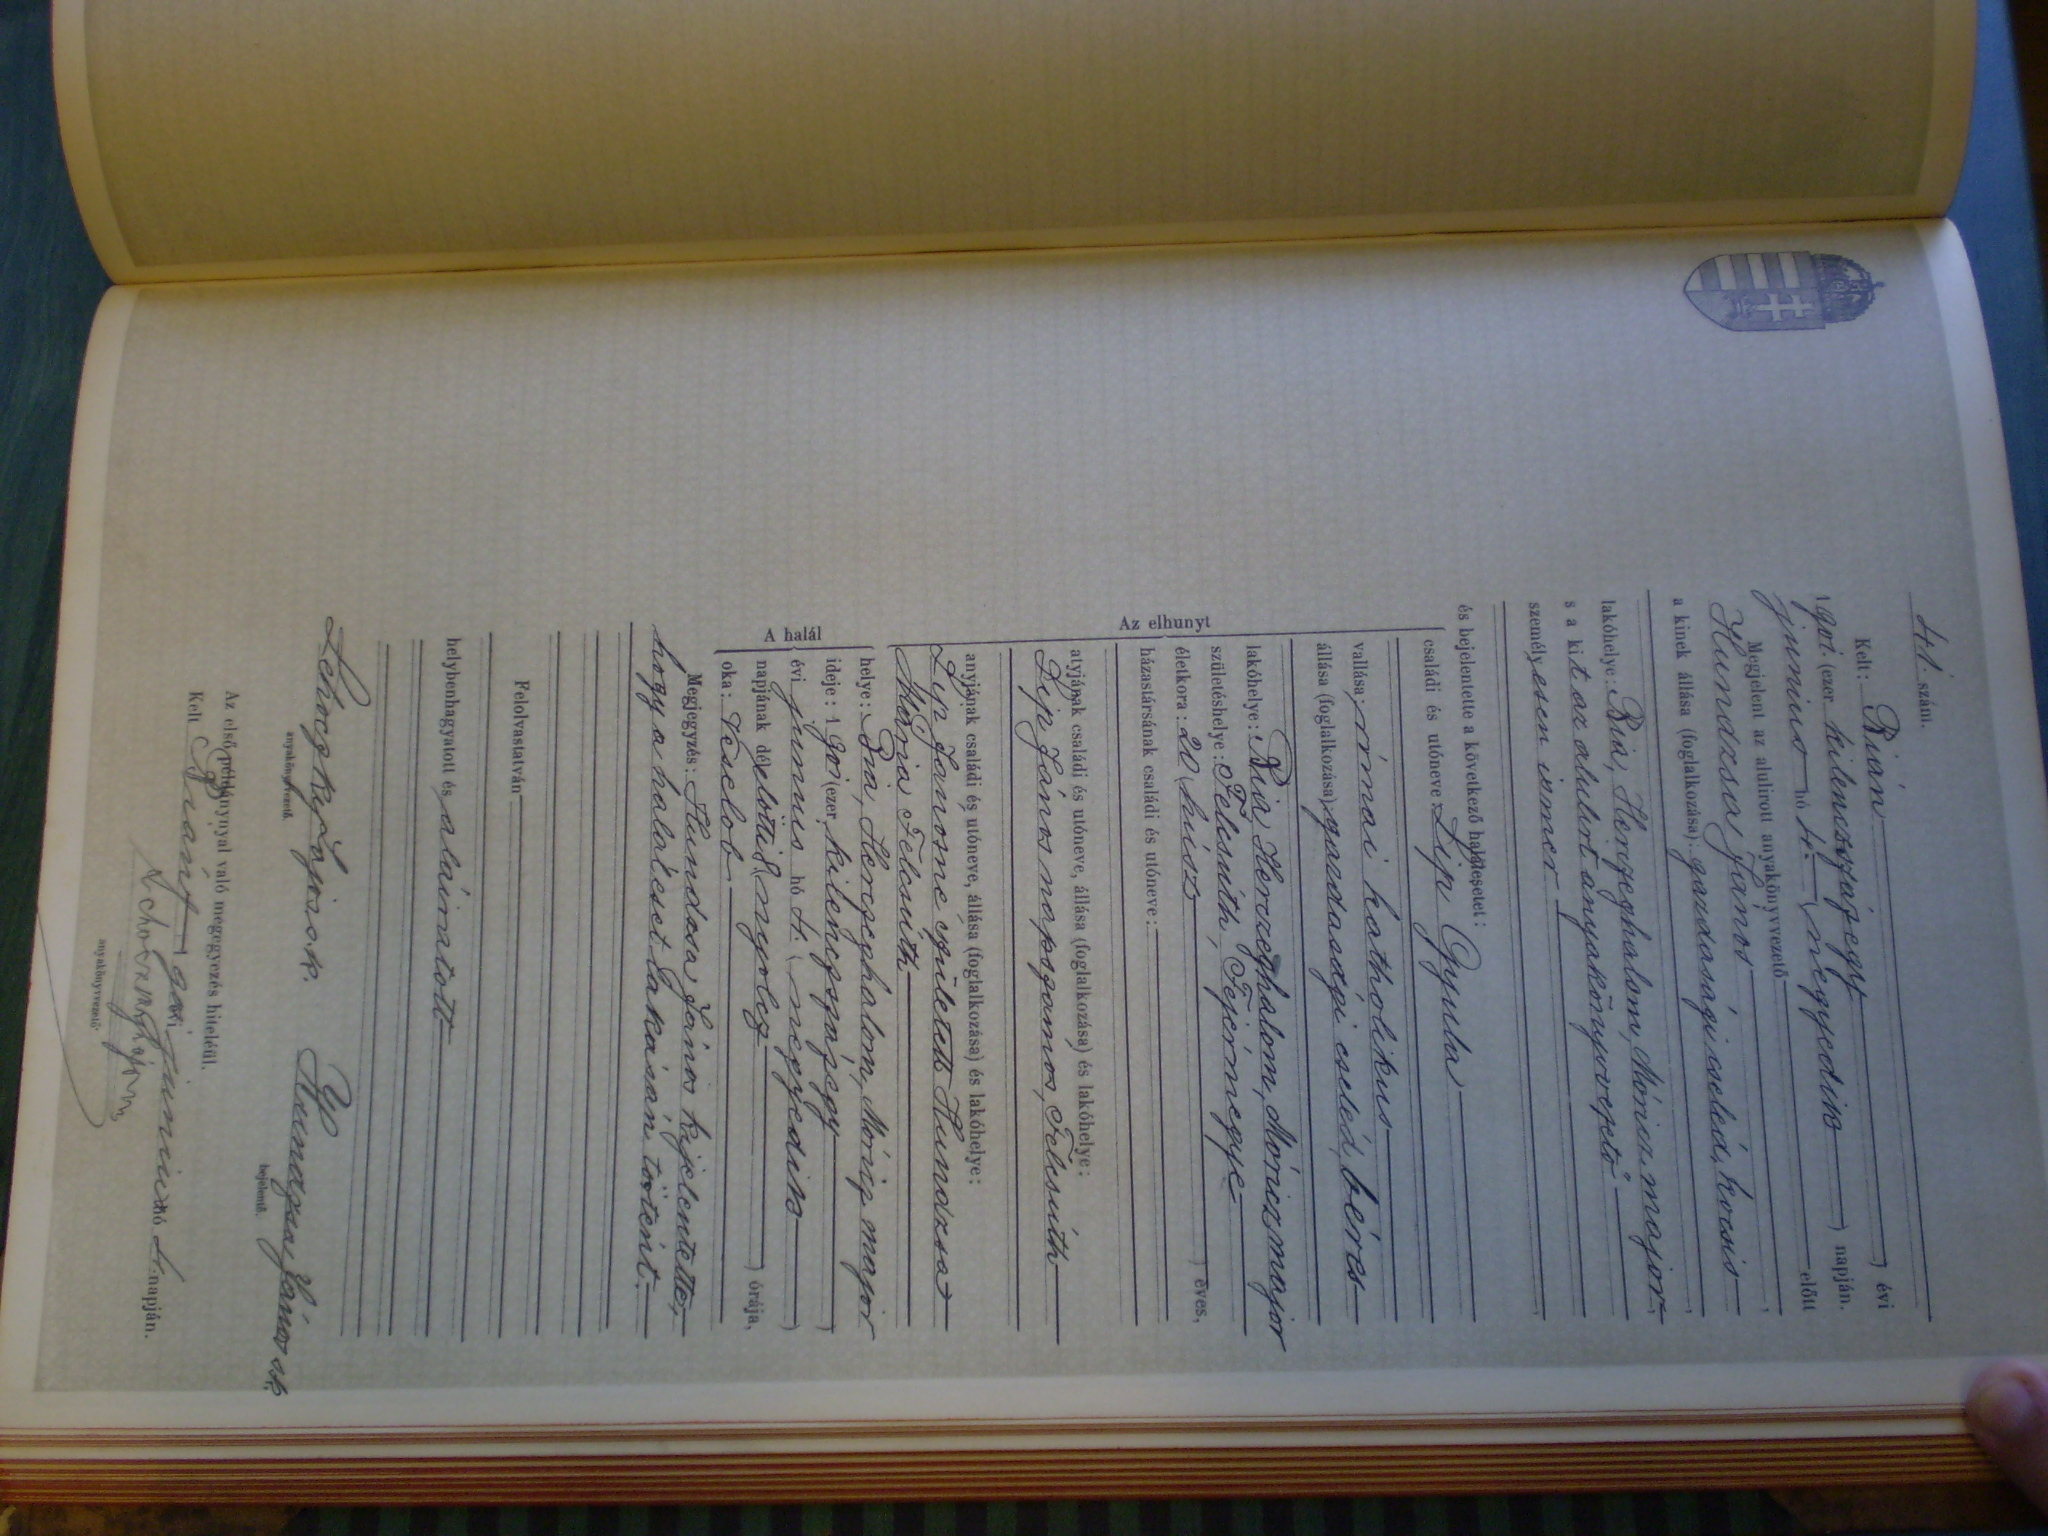 41. szám.
Kelt: Bián ) évi
1901. (ezer kilenczszázegy
junius hó 4. ( negyedik ) napján.
Megjelent az alulirott anyakönyvvezető előtt
Hundzsa János
a kinek állása (foglalkozása): gazdasági cseléd, kocsis
lakóhelye: Bia, Herczeghalom, Móricz major
s a kit az alulirt anyakönyvvezető
személyesen ismer
és bejelentette a következő halálesetet:
családi és utóneve: Lip Gyula
vallása: római katholikus
állása (foglalkozása): gazdasági cseléd, béres
lakóhelye: Bia, Herczeghalom, Móricz major
születéshelye: Felcsúth, Fejérmegye
életkora: 20 (húsz ) éves,
házastársának családi és utóneve:
Az elhunyt
atyjának családi és utóneve, állása (foglalkozása) és lakóhelye:
Lip János napszámos, Felcsúth
anyjának családi és utóneve, állása (foglalkozása) és lakóhelye:
Lip Jánosné született Hundzsa
Mária Felcsúth
A halál
helye: Bia, Herczeghalom, Móricz major
ideje: 1901 (ezer kilenczszázegy )
évi junius hó 4. ( negyedik )
napjának délelőtti 8 (nyolcz ) órája,
oka: Vészlob.
Megjegyzés: Hundzsa János kijelentette,
hogy a haláleset lakásán történt.
Felolvastatván
helybenhagyatott és aláiratott
Lehoczky Lajos s.k. Hundzsa János sk
anyakönyvvezető. bejelentő.
Az első példánynyal való megegyezés hiteléül.
Kelt Bián 1901 junius hó 4. napján.
Lehoczky Lajos
anyakönyvvezető.